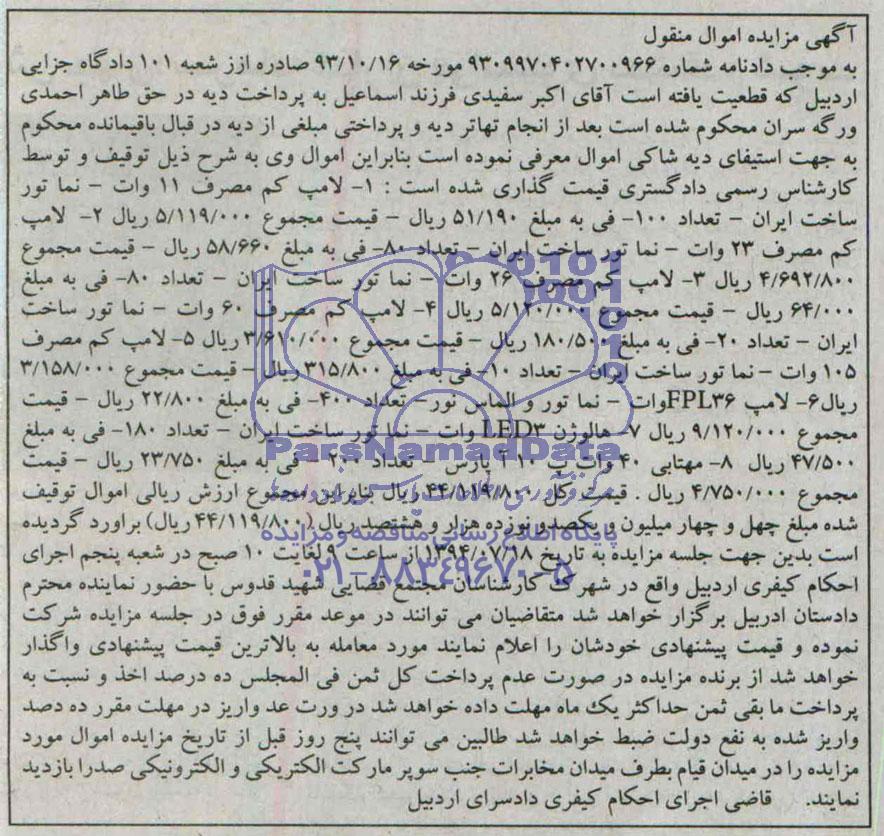 آگهی مزایده اموال منقول
به موجب دادنامه شماره ۹۳۰۹۹۷۰۴۰۲۷۰۰۹۶۶ مورخه ۹۳/۱۰/۱۶ صادره ازز شعبه ۱۰۱ دادگاه جزایی
اردبیل که قطعیت یافته است آقای اکبر سفیدی فرزند اسماعیل به پرداخت دیه در حق طاهر احمدی
ورگه سران محکوم شده است بعد از انجام تهاتر دیه و پرداختی مبلغی از دیه در قبال باقیمانده محکوم
به جهت استیفای دیه شاکی اموال معرفی نموده است بنابراین اموال وی به شرح ذیل توقیف و توسط
کارشناس رسمی دادگستری قیمت گذاری شده است : ۱- لامپ کم مصرف ۱۱ وات - نما تور
ساخت ایران - تعداد ۱۰۰- فی به مبلغ ۵۱/۱۹۰ ریال - قیمت مجموع ۵/۱۱۹/۰۰۰ ریال ۲- لامپ
کم مصرف ۲۳ وات - نما تور ساخت ایران - تعداد ۸۰- فی به مبلغ ۵۸/۶۶۰ ریال - قیمت مجموع
۴/۶۹۲/۸۰۰ ریال ۳- لامپ کم مصرف ۲۶ وات - نما تور ساخت ایران - تعداد ۸۰- فی به مبلغ
۶۴/۰۰۰ ریال - قیمت مجموع ۵/۱۲۰/۰۰۰ ریال ۴- لامپ کم مصرف ۶۰ وات - نما تور ساخت
ایران - تعداد ۲۰- فی به مبلغ ۱۸۰/۵۰۰ ریال - قیمت مجموع ۳/۶۱۰/۰۰۰ ریال ۵- لامپ کم مصرف
۱۰۵ وات - نما تور ساخت ایران - تعداد ۱۰- فی به مبلغ ۳۱۵/۸۰۰ ریال - قیمت مجموع ۳/۱۵۸/۰۰۰
ریال۶- لامپ FPL۳۶وات - نما تور و الماس نور- تعداد ۴۰۰- فی به مبلغ ۲۲/۸۰۰ ریال - قیمت
مجموع ۹/۱۲۰/۰۰۰ ریال ۷- هالوژن LED۳ وات - نما تور ساخت ایران - تعداد ۱۸۰- فی به مبلغ
۴۷/۵۰۰ ریال ۸- مهتابی ۴۰ وات پ ۱۰-۲ پارس - تعداد ۲۰۰ - فی به مبلغ ۲۳/۷۵۰ ریال - قیمت
مجموع ۴/۷۵۰/۰۰۰ ریال . قیمت کل ۴۴/۱۱۹/۸۰۰ ریال بنابراین مجموع ارزش ریالی اموال توقیف
شده مبلغ چهل و چهار میلیون و یکصدو نوزده هزار و هشتصد ریال (۴۴/۱۱۹/۸۰۰ ریال) براورد گردیده
است بدین جهت جلسه مزایده به تاریخ ۱۳۹۴/۰۷/۱۸ از ساعت ۹ لغایت ۱۰ صبح در شعبه پنجم اجرای
احکام کیفری اردبیل واقع در شهرک کارشناسان مجتمع قضایی شهید قدوس با حضور نماینده محترم
دادستان ادربیل برگزار خواهد شد متقاضیان می توانند در موعد مقرر فوق در جلسه مزایده شرکت
نموده و قیمت پیشنهادی خودشان را اعلام نمایند مورد معامله به بالاترین قیمت پیشنهادی واگذار
خواهد شد از برنده مزایده در صورت عدم پرداخت کل ثمن فی المجلس ده درصد اخذ و نسبت به
پرداخت ما بقی ثمن حداکثر یک ماه مهلت داده خواهد شد در ورت عد واریز در مهلت مقرر ده دصد
واریز شده به نفع دولت ضبط خواهد شد طالبین می توانند پنج روز قبل از تاریخ مزایده اموال مورد
مزایده را در میدان قیام بطرف میدان مخابرات جنب سوپر مارکت الکتریکی و الکترونیکی صدرا بازدید
نمایند. قاضی اجرای احکام کیفری دادسرای اردبیل
ParsNamadData
پایگاه اطلاع رسانی مناقصه و مزایده
۰۲۱-۸۸۳۴۹۶۷۰-۵